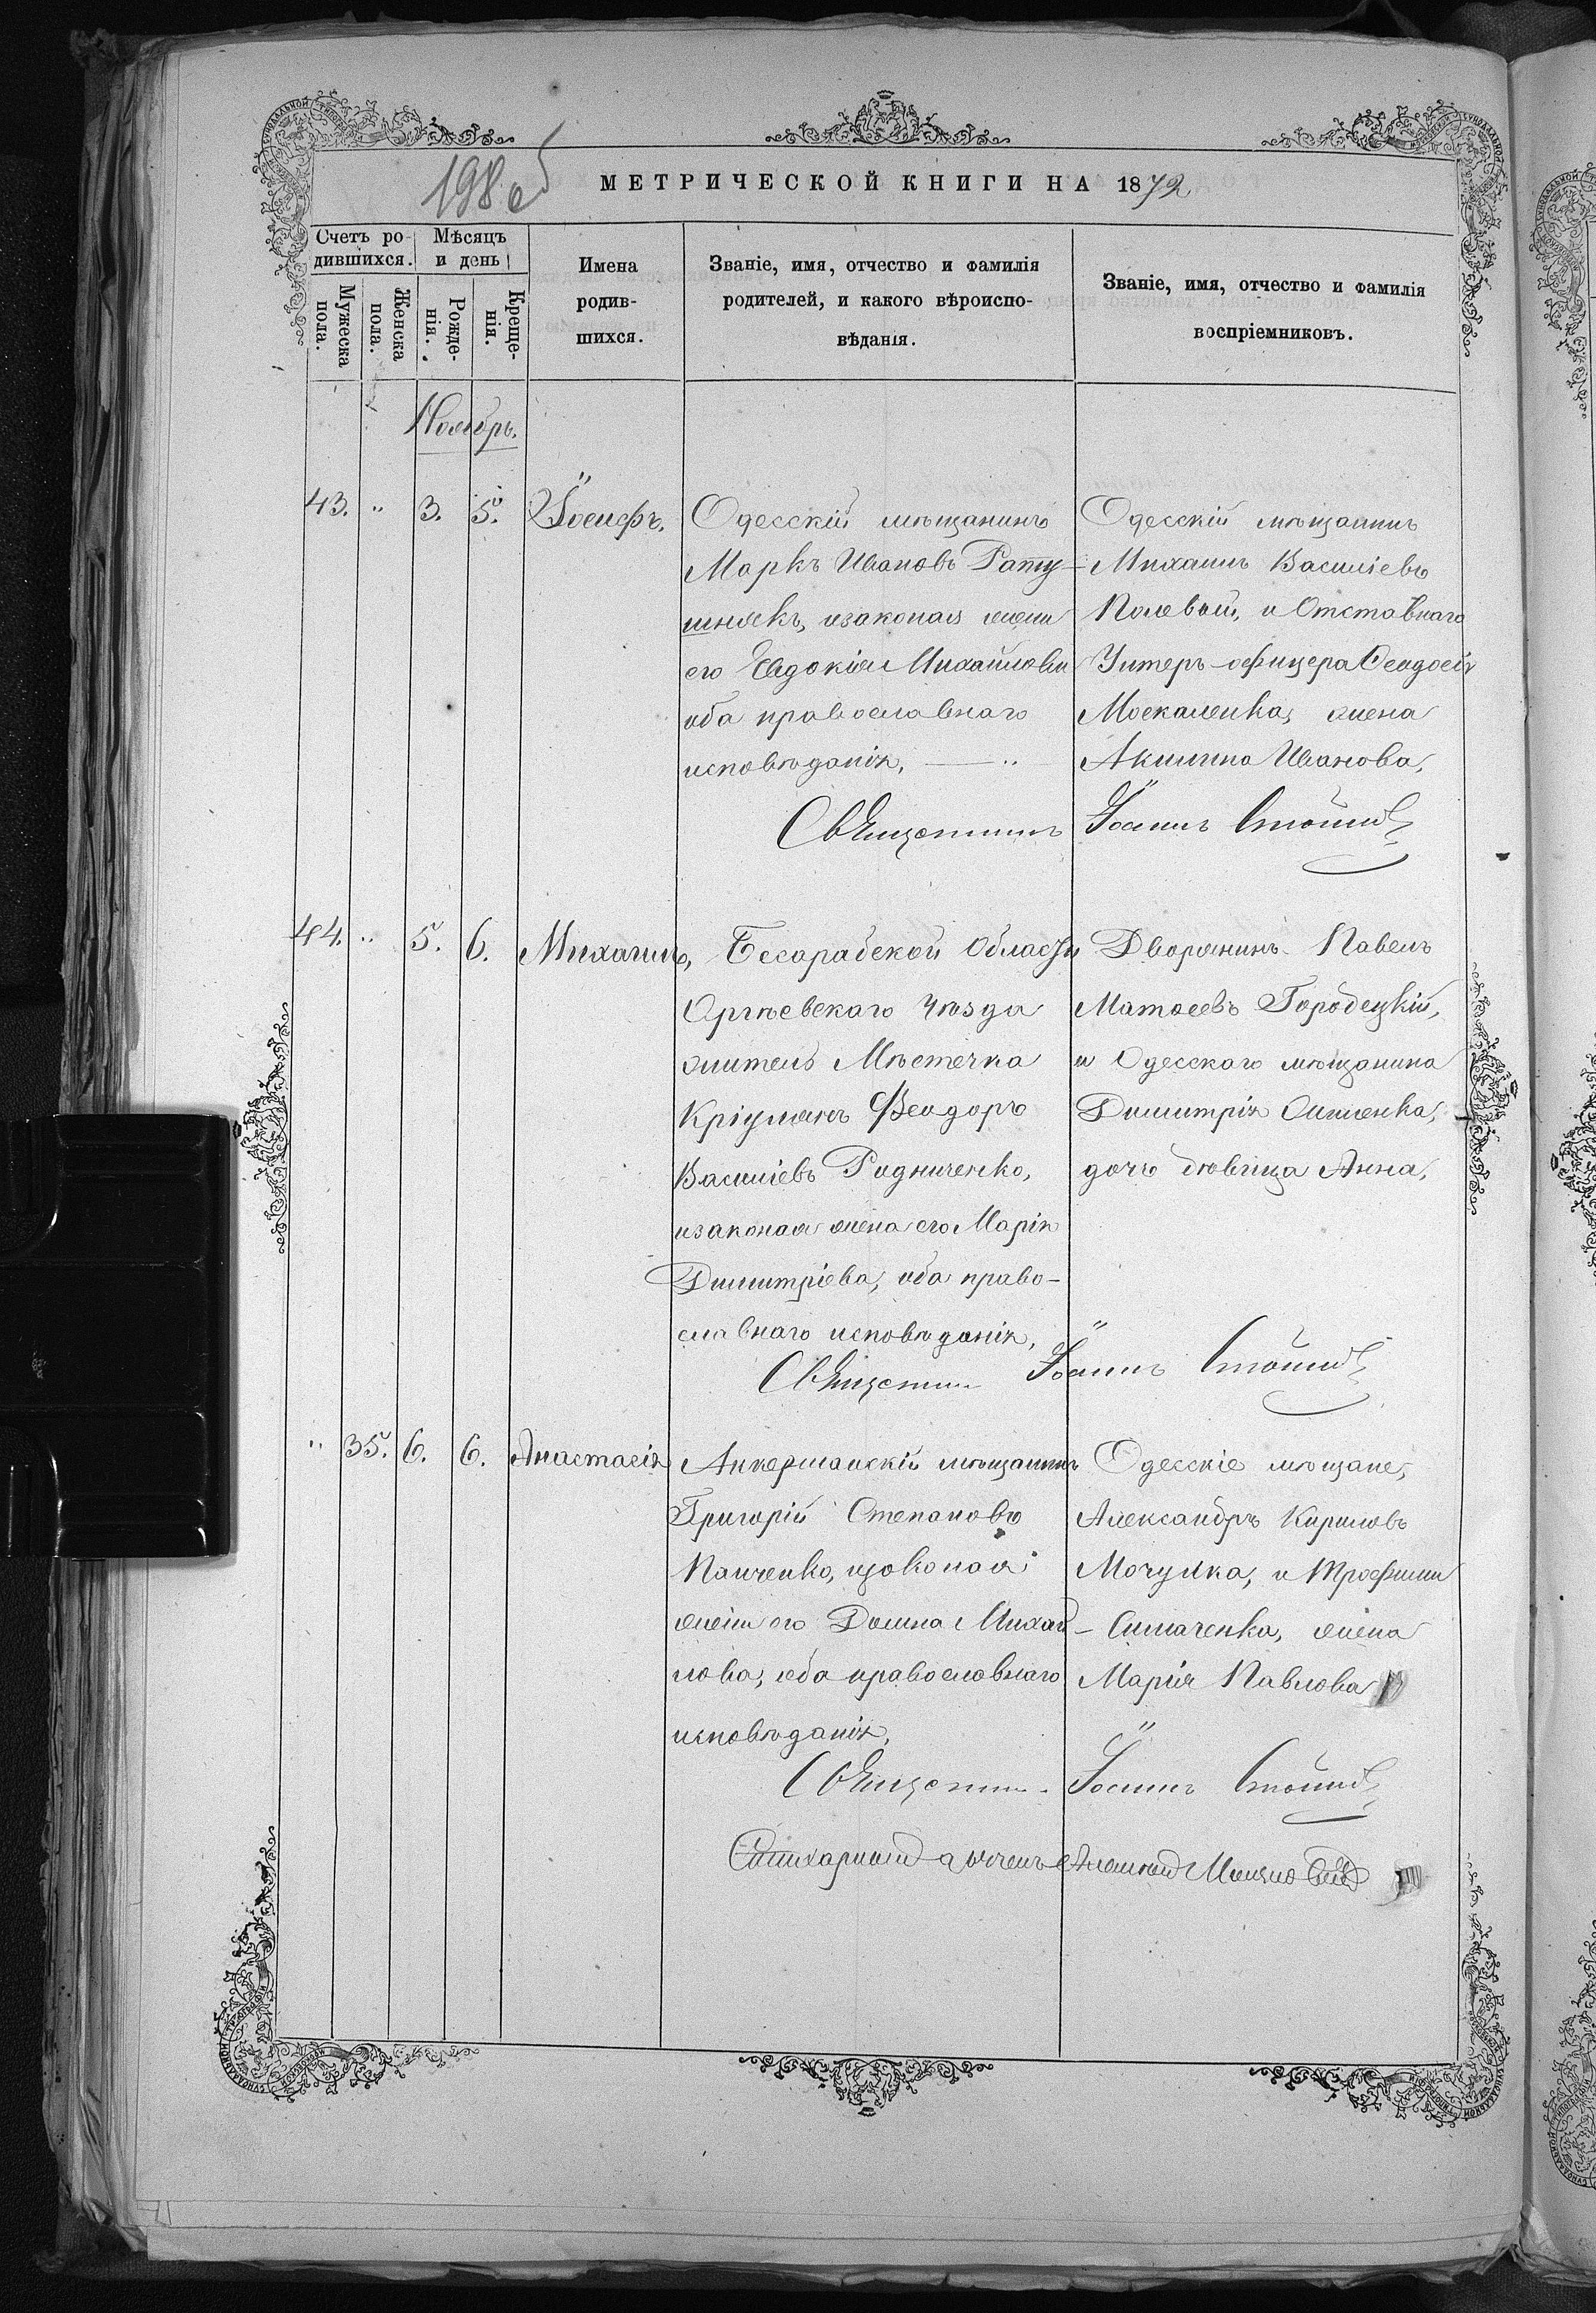 198 об
МЕТРИЧЕСКОЙ КНИГИ НА 1872
Счетъ ро-
дившихся.
Мѣсяцъ
и день
Мужеска
пола.
Женска
пола.
Рожде-
нія.
Креще-
нія.
Имена
родив-
шихся.
Званіе, имя, отчество и фамилія
родителей, и какого вѣроиспо-
вѣданія.
Званіе, имя, отчество и фамилія
воспріемниковъ.
Ноябрь.
43. " 3. 5. Іосифъ.
Одесскій мѣщанинъ
Маркъ Ивановъ Рату-
шнякъ, изаконая жена
его Евдокія Михайлова
оба православнаго
исповѣданія, — "
Одесскій мѣщанинъ
Михаилъ Василіевъ
Полевой, и Отставнаго
Унтеръ-офицера Феодосія
Москаленка, жена
Акилина Иванова,
Священникъ Іоаннъ
44. " 5. 6. Михаилъ,
Бессарабской Области
Оргѣевскаго Уѣзда
житель Мѣстечка
Кріулянъ Феодоръ
Василіевъ Родниченко,
изаконая жена его Марія
Димитріева, оба право-
славнаго исповѣданія,
Дворянинъ Павелъ
Матѳеевъ Городецкій,
и Одесскаго мѣщанина
Димитрія
дочь дѣвица Анна,
Священникъ Іоаннъ
" 35. 6. 6. Анастасія
Аккерманскій мѣщанинъ
Григорій Степановъ
Панченко, изаконая
жена его Домна Михай-
лова, оба православнаго
исповѣданія,
Одесскіе мѣщане,
Александръ Кириловъ
Мочулка, и Трофима
Симаченка, жена
Марія Павлова
Священникъ Іоаннъ
Стихарный дьячекъ